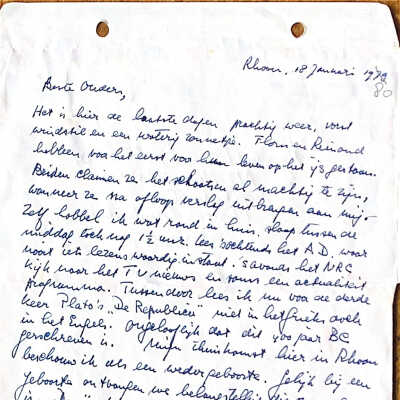 Rhoon, 18 Januari 1979
80
Beste Ouders,
Het is hier de laatste dagen prachtig weer, vorst
windstil en een waterig zonnetje. Floor en Reinoud
hebben voor het eerst van hun leven op het ijs gestaan.
Beiden claimen ze het schaatsen al machtig te zijn,
wanneer ze na afloop verslag uitbrengen aan mij.
Zelf hobbel ik wat rond in huis, slaap tussen de
middag toch nog 1½ uur, lees 's ochtends het A.D. waar
nooit iets lezenswaardig in staat. 's avonds het NRC.
Kijk naar het TV nieuws en soms een actualiteit
programma. Tussendoor lees ik nu voor de derde
keer Plato's "De Republiek" niet in het Grieks doch
in het Engels. Ongelooflijk dat dit 400 jaar BC
geschreven is. Mijn thuiskomst hier in Rhoon
beschouw ik als een wedergeboorte. Gelijk bij een
geboorte ontvangen we belangstelling